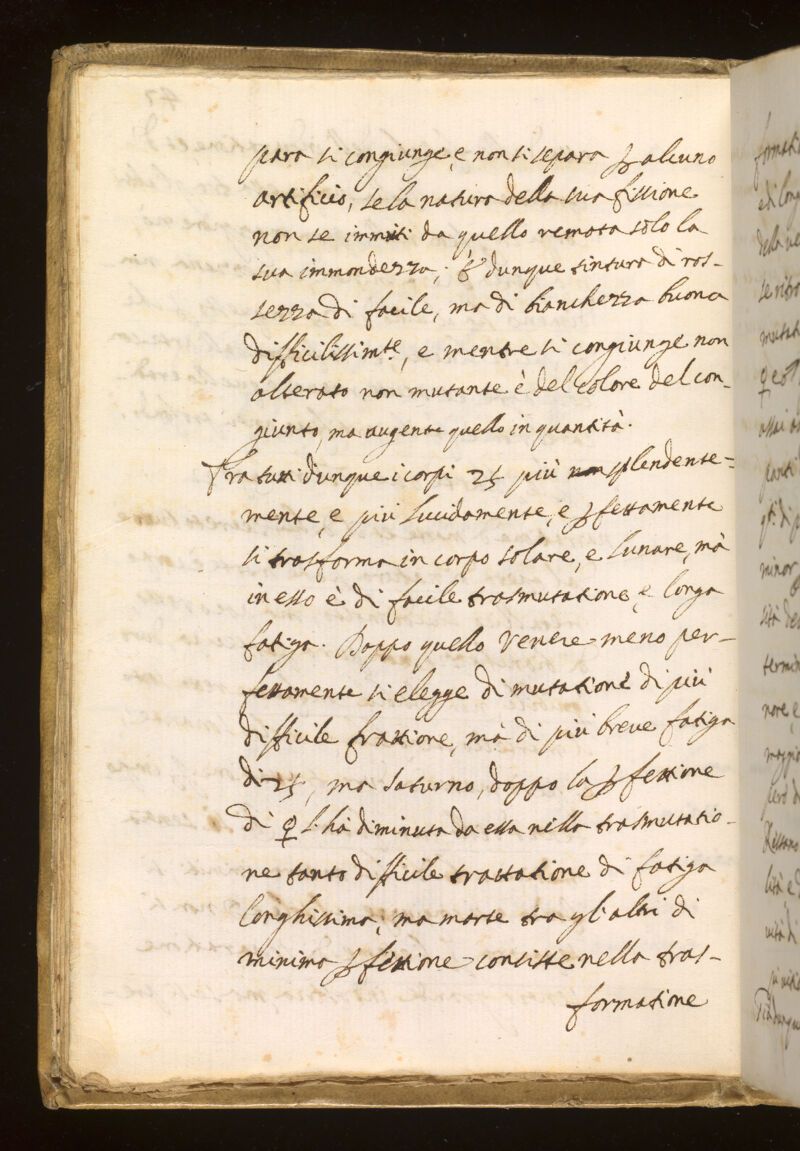 para si congiunge, e non si separa ꝑ alcuno
artificio, se la natura della sua fissione
non se immiti da quello remota solo la
sua immondezza; È dunque tintura di ros-
sezza di facile, ma di bianchezza buona
difficilissimte, e mentre si congiunge non
alterato non mutante è del colore del con-
giunto, ma augente quello in quantità.
Fra tutti dunque i corpi ♃ più splendente=
mente, e più lucidamente, e ꝑfettamente
si trasforma in corpo solare, e lunare, mà
in esso è di facile trasmutatione, e longa
fatiga. Doppo quello Venere meno per-
fettamente si elegge di mutatione di più
difficile frattione, mà di più breve fatiga
di ♃, ma Saturno, doppo la ꝑfettione
di ♀ l'hà diminuta da essa nella trasmutatio-
ne tanto difficile trattatione di fatiga
longhissima; ma marte tra gl'altri di
minima ꝑfettione consiste nella tras-
formatione